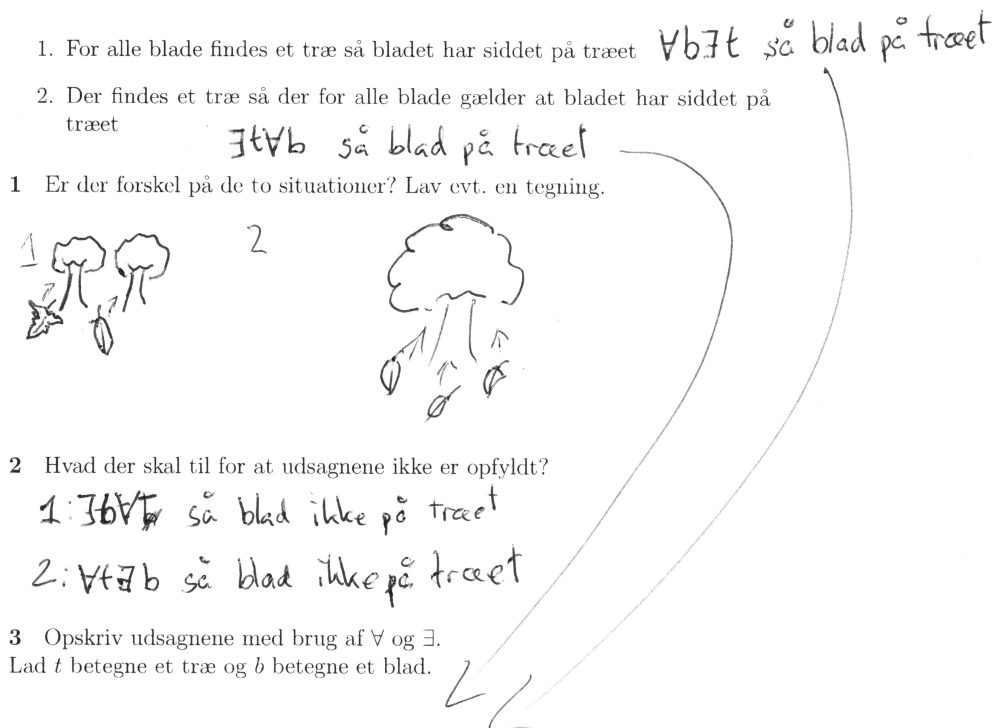 1. For alle blade findes et træ så bladet har siddet på træet ∀b∃t så blad på træet
2. Der findes et træ så der for alle blade gælder at bladet har siddet på
træet
∃t∀b så blad på træet
1 Er der forskel på de to situationer? Lav evt. en tegning.
1 2
2 Hvad der skal til for at udsagnene ikke er opfyldt?
1: ∃b∀t så blad ikke på træet
2: ∀t∃b så blad ikke på træet
3 Opskriv udsagnene med brug af ∀ og ∃.
Lad t betegne et træ og b betegne et blad.